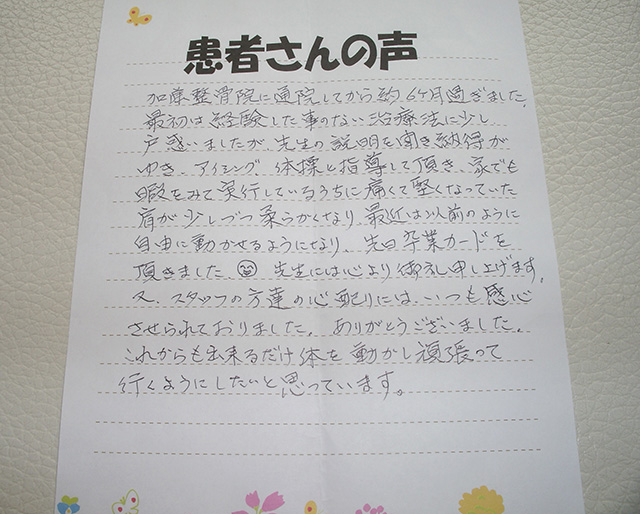 患者さんの声
加藤整骨院に通院してから約6ヶ月過ぎました。
最初は経験した事のない治療法に少し
戸惑いましたが、先生の説明を聞き納得が
ゆき、アイシング、体操と指導して頂き、家でも
暇をみて実行しているうちに痛くて堅くなっていた
肩が少しづつ柔らかくなり、最近は以前のように
自由に動かせるようになり、先日卒業カードを
頂きました 先生には心より御礼申し上げます。
又、スタッフの方達の心配りには、いつも感心
させられておりました。ありがとうございました。
これからも出来るだけ体を動かし頑張って
行くようにしたいと思っています。